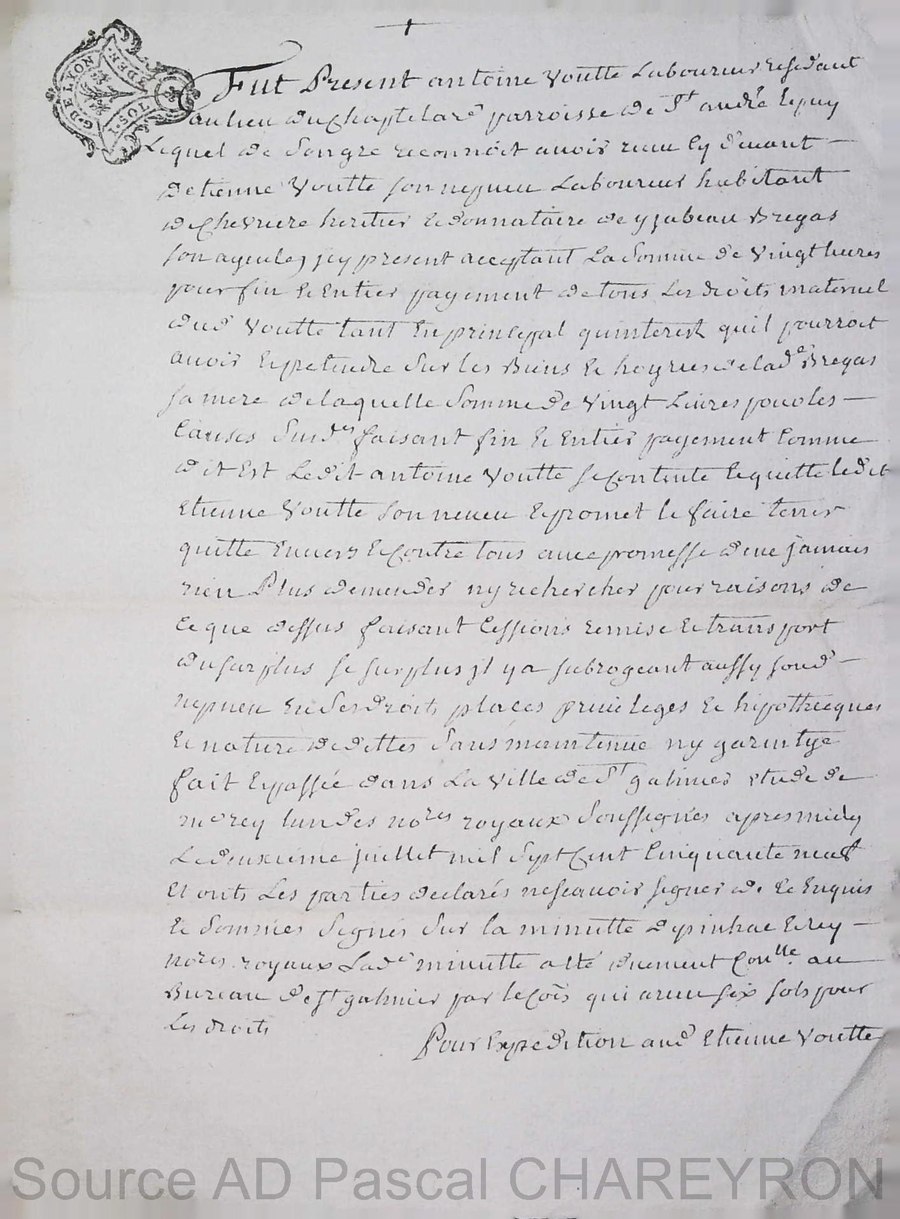 G. DE LYON
DEN.
TOS.
Fut Present antoine Voutte Laboureur residant
au lieu du Chaptelard parroisse de St andré Lepuy
Lequel de Son gre reconnoit avoir receu Cy devant
detienne Voutte son nepueu Laboureur habitant
de Chevriere heritier & donnataire de ysabeau Bregas
son ayeule, jcy present acceptant La Somme de Vingt livres
pour fin & Entier payement de tous Les droits maternel
dud Voutte tant En principal quinterest quil pourroit
avoir & pretendre Sur Les Biens & hoyries de lade Bregas
sa mere de laquelle Somme de Vingt Livres pour les
Causes Susdes faisant fin & Entier payement Comme
dit Est Ledit antoine Voutte se Contente & quitte ledit
Etienne Voutte son neveu & promet le faire tenir
quitte Envers & Contre tous avec promesse de ne jamais
rien Plus demender ny rechercher pour raisons de
Ce que dessus faisant Cessions remise & transport
du surplus se surplus jl y a subrogeant aussy sond
nepueu En Ses droits places privileges & hipothecques
& nature de dettes Sans maintenue ny garintye
fait & passée dans La Ville de St galmier etude de
me rey lun des nores royaux Soussignés apres midy
Le deuxieme juillet mil Sept Cent Cinquante neuf
Et onts Les parties declarés ne scavoir signer de Ce Enquis
& Sommés Signés Sur la minutte depinhac & rey
nores royaux Lade minutte a eté duement Conlle au
Bureau de st galmier par lecois qui a receu six sols pour
Les droits
Pour Expedition aud Etienne Voutte
Source AD Pascal CHAREYRON